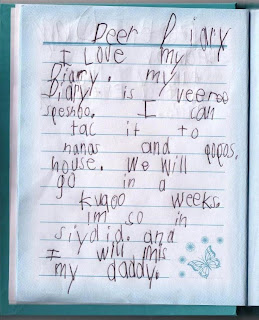 Deer Diary
I Love my
Diary. my
Diary. is veeroo
speshoo. I can
tac it to
nanas and popos.
house. We will
go in a
kugoo weeks.
im so in
siydid. and
I will mis
my daddy.